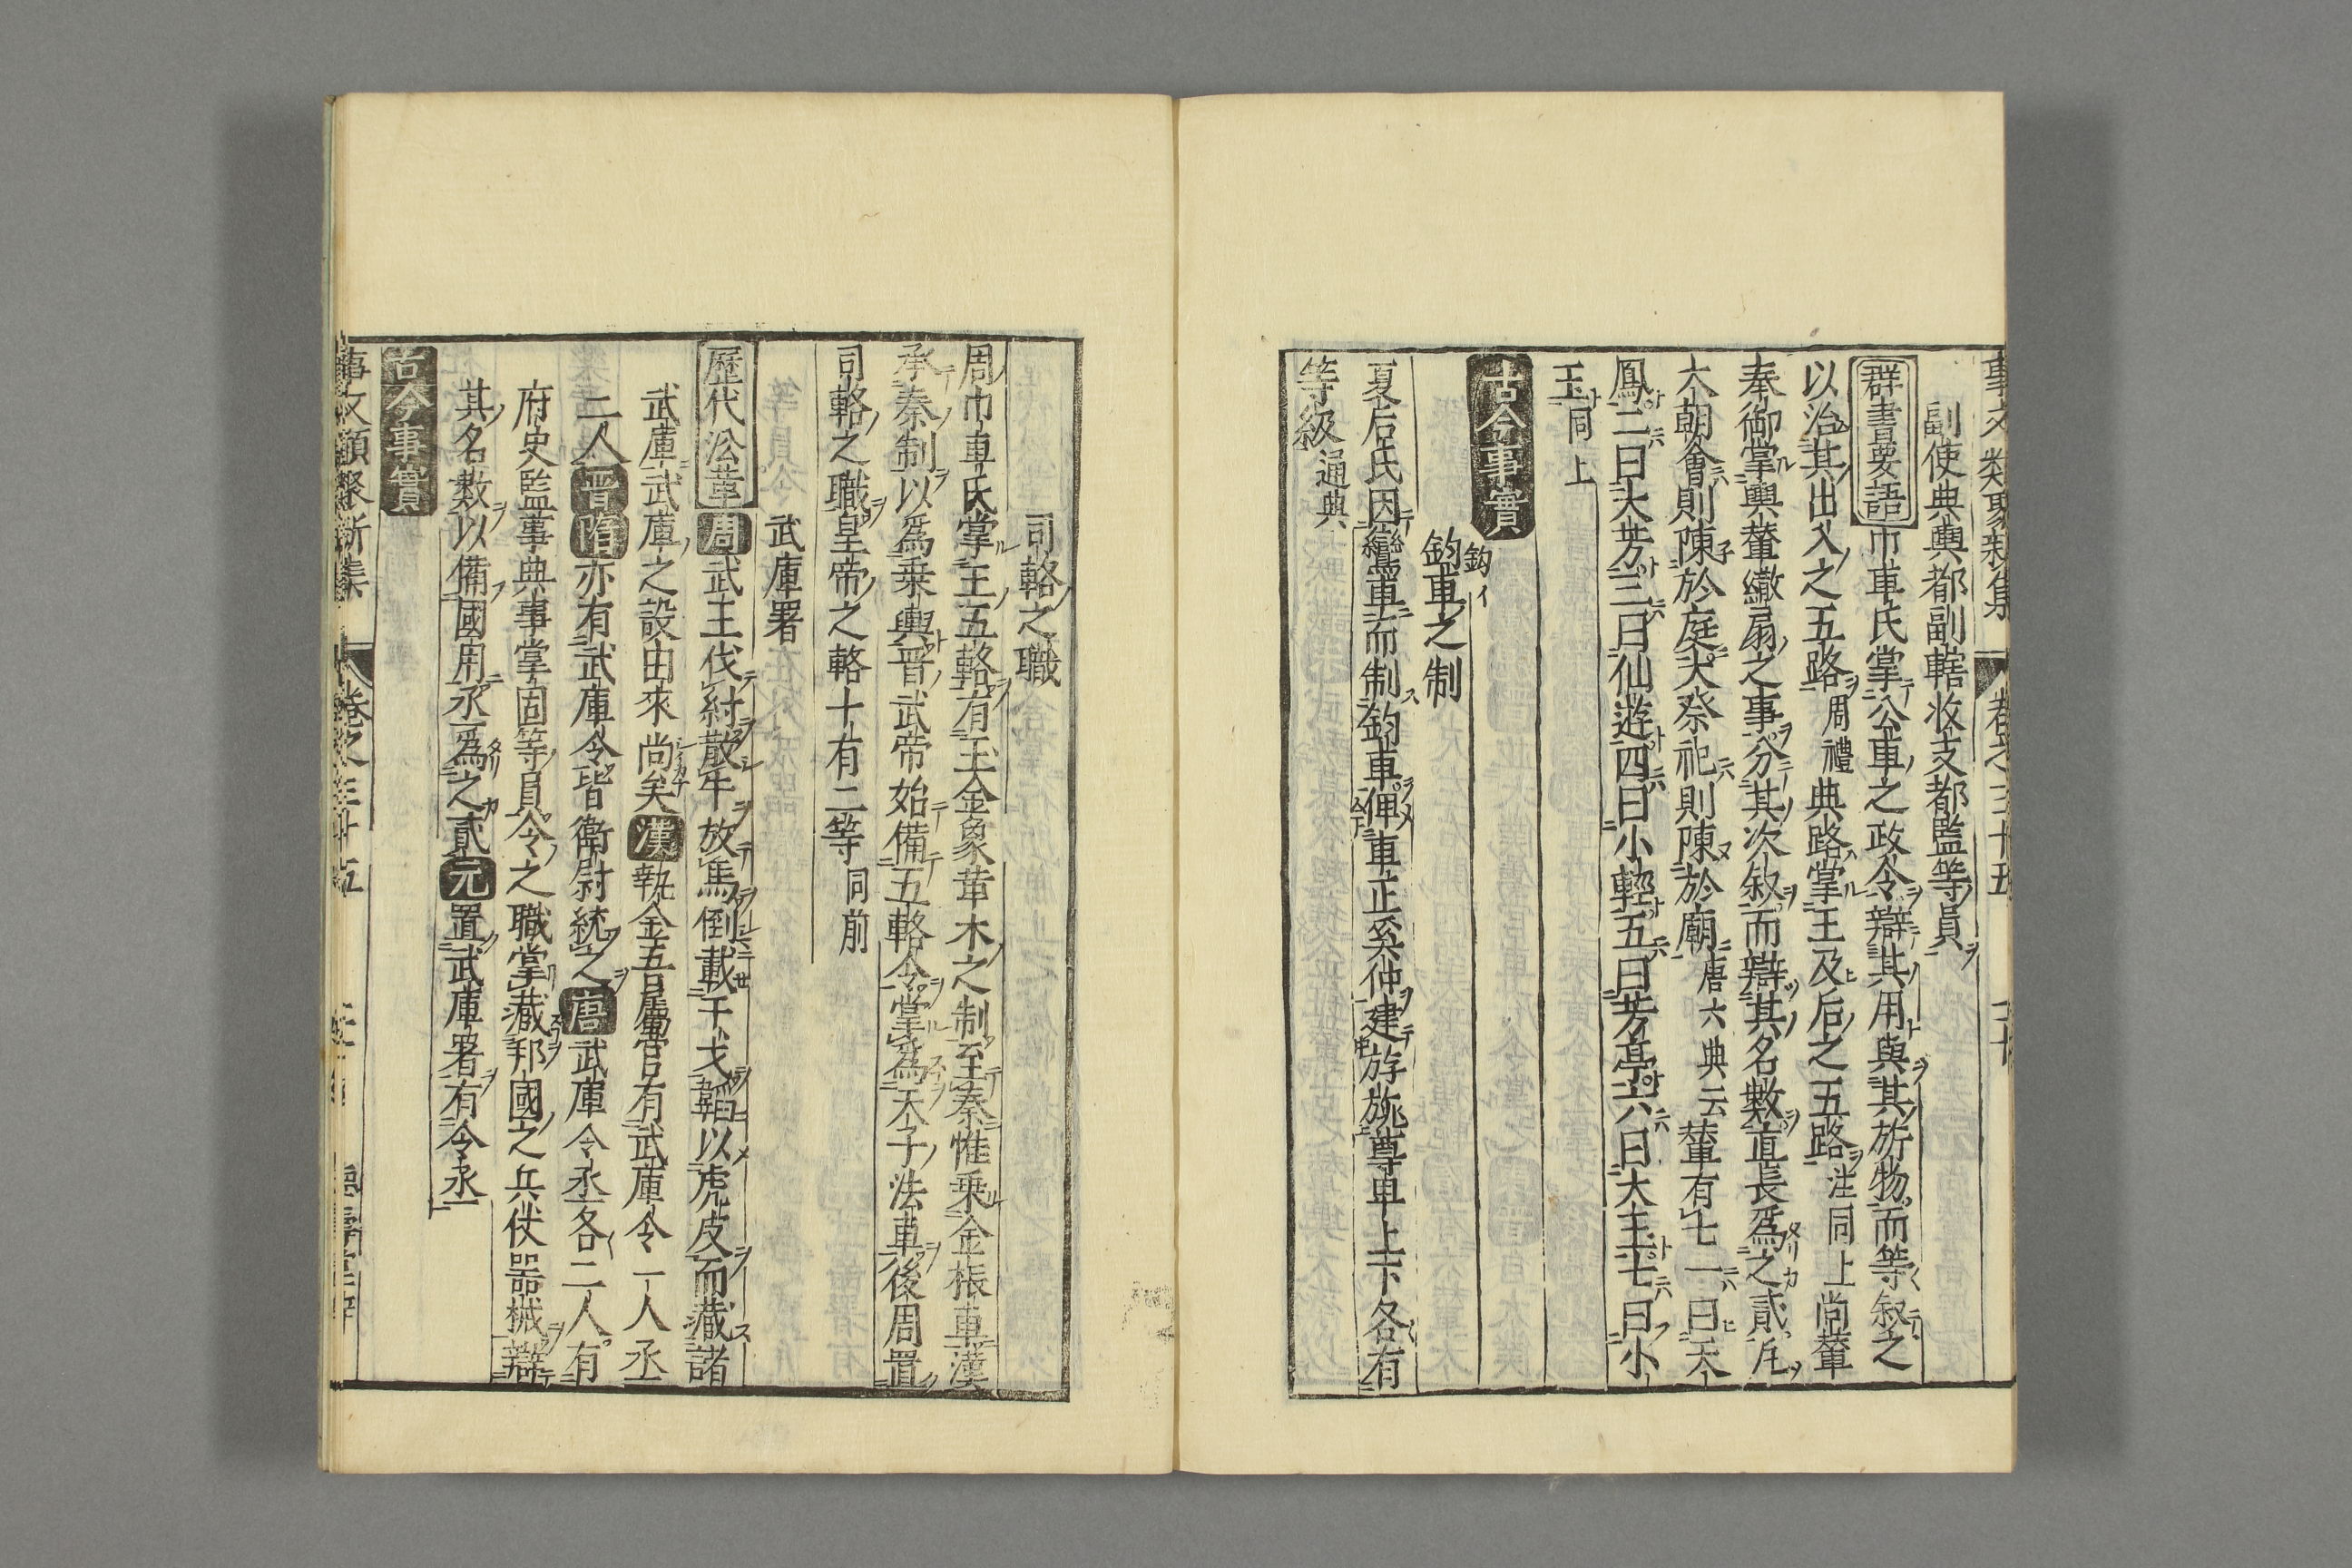 事文類聚新集 卷之三十五
副使典輿都副轄收支都監等員
群書要語巾車氏掌公車之政令辯其用與其旂物而等叙之
以治其出入之五路周禮典路掌王及后之五路注同上尚輦
奉御掌輿輦繖扇之事分其次叙而辯其名數直長爲之貳凡
大朝會則陳於庭大祭祀則陳於廟唐六典云輦有七一曰大
鳳二曰大芳三曰仙遊四曰小輕五曰芳亭六曰大玉七曰小
玉同上
古今事實
鈎車之制
夏后氏因鸞車而制鈎車俾車正奚仲建斿旐尊卑上下各有
等級通典
司輅之職
周巾車氏掌王五輅有玉金象革木之制至秦惟乗金根車漢
承秦制以爲乗輿晋武帝始備五輅令掌爲天子法車後周置
司輅之職皇帝之輅十有二等同前
武庫署
歷代沿革周武王伐紂散牛放馬倒載干戈韜以虎皮而藏諸
武庫武庫之設由來尚矣漢執金吾屬官有武庫令一人丞
二人晋隋亦有武庫令皆衛尉統之唐武庫令丞各二人有
府史監事典事掌固等員令之職掌藏邦國之兵仗器械辯
其名數以備國用丞爲之貳元置武庫署有令丞
古今事實
事文類聚新集 卷之三十五